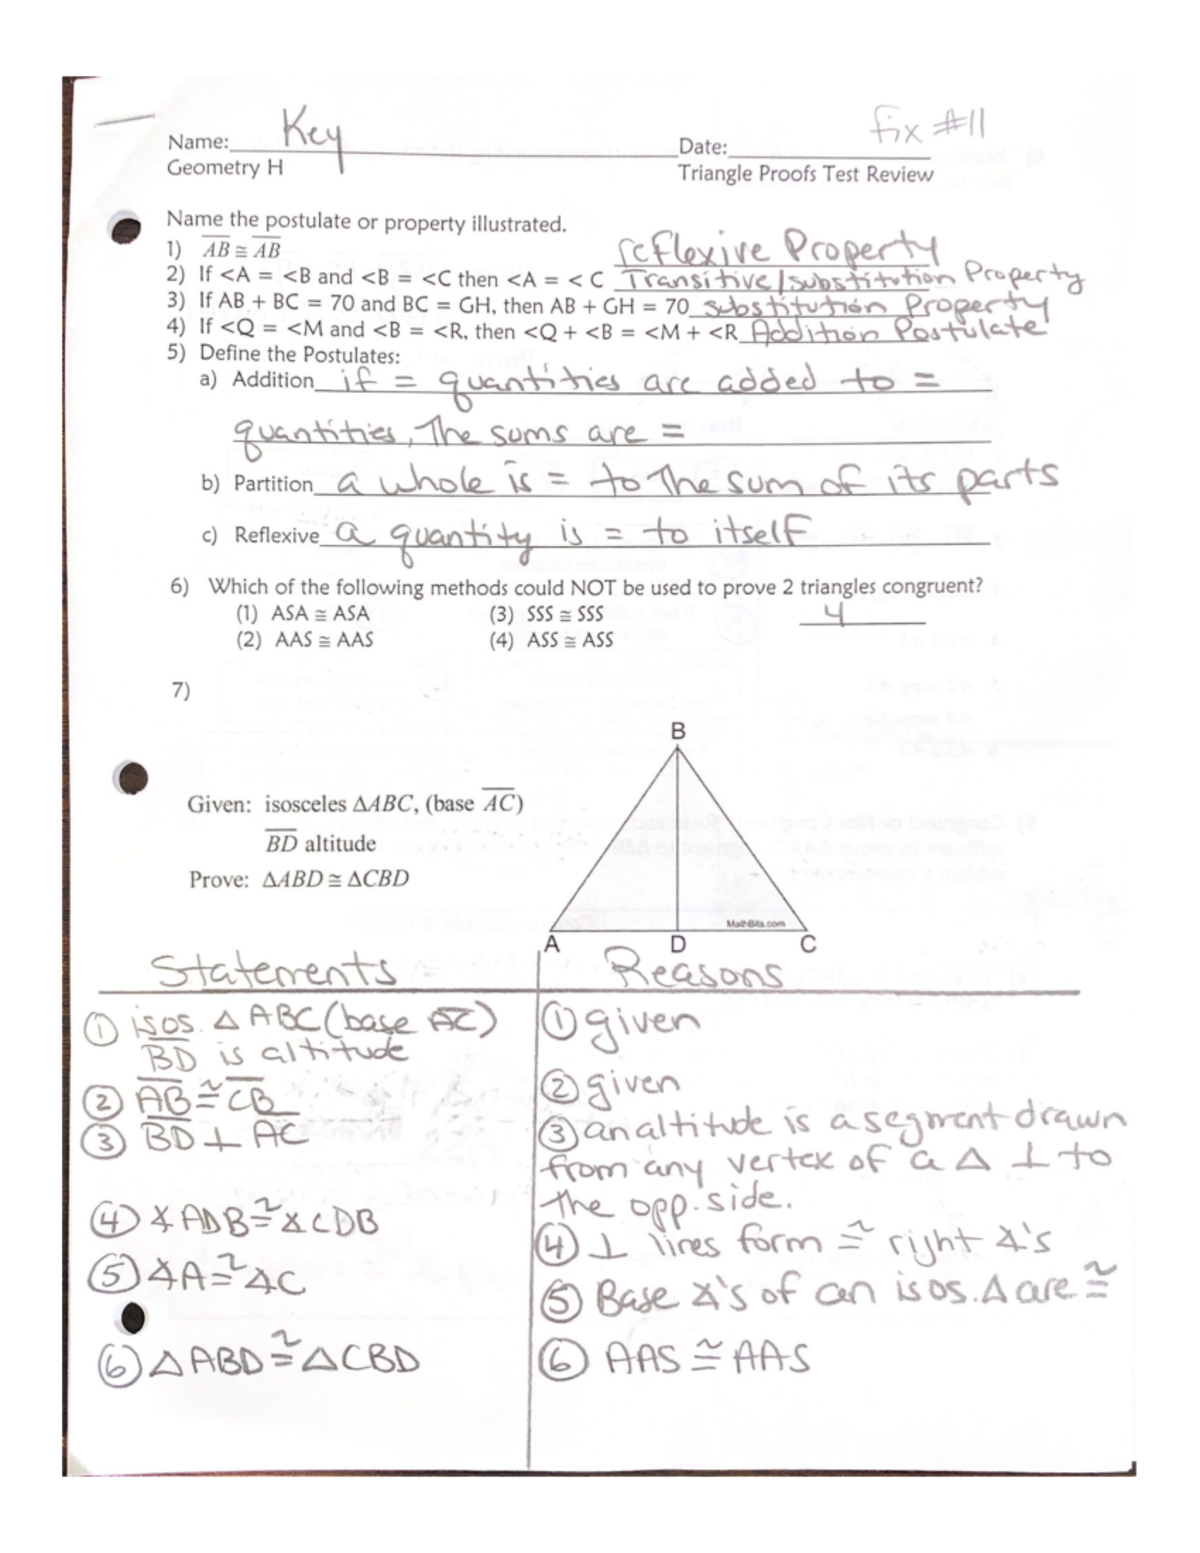 Name: Key
Date: fix #11
Geometry H
Triangle Proofs Test Review
Name the postulate or property illustrated.
1) AB ≅ AB reflexive Property
2) If <A = <B and <B = <C then <A = < C Transitive/substitution Property
3) If AB + BC = 70 and BC = GH, then AB + GH = 70 substitution Property
4) If <Q = <M and <B = <R, then <Q + <B = <M + <R Addition Postulate
5) Define the Postulates:
a) Addition if = quantities are added to =
quantities, The sums are =
b) Partition a whole is = to the sum of its parts
c) Reflexive a quantity is = to itself
6) Which of the following methods could NOT be used to prove 2 triangles congruent?
(1) ASA ≅ ASA (3) SSS ≅ SSS 4
(2) AAS ≅ AAS (4) ASS ≅ ASS
7)
B
Given: isosceles ΔABC, (base AC)
BD altitude
Prove: ΔABD ≅ ΔCBD
MathBits.com
A D C
Statements Reasons
① isos. Δ ABC (base AC) ① given
BD is altitude
② AB ≅ CB ② given
③ BD ⊥ AC ③ an altitude is a segment drawn
from any vertex of a Δ ⊥ to
the opp. side.
④ ∡ADB ≅ ∡CDB ④ ⊥ lines form ≅ right ∡'s
⑤ ∡A ≅ ∡C ⑤ Base ∡'s of an isos. Δ are ≅
⑥ ΔABD ≅ ΔCBD ⑥ AAS ≅ AAS